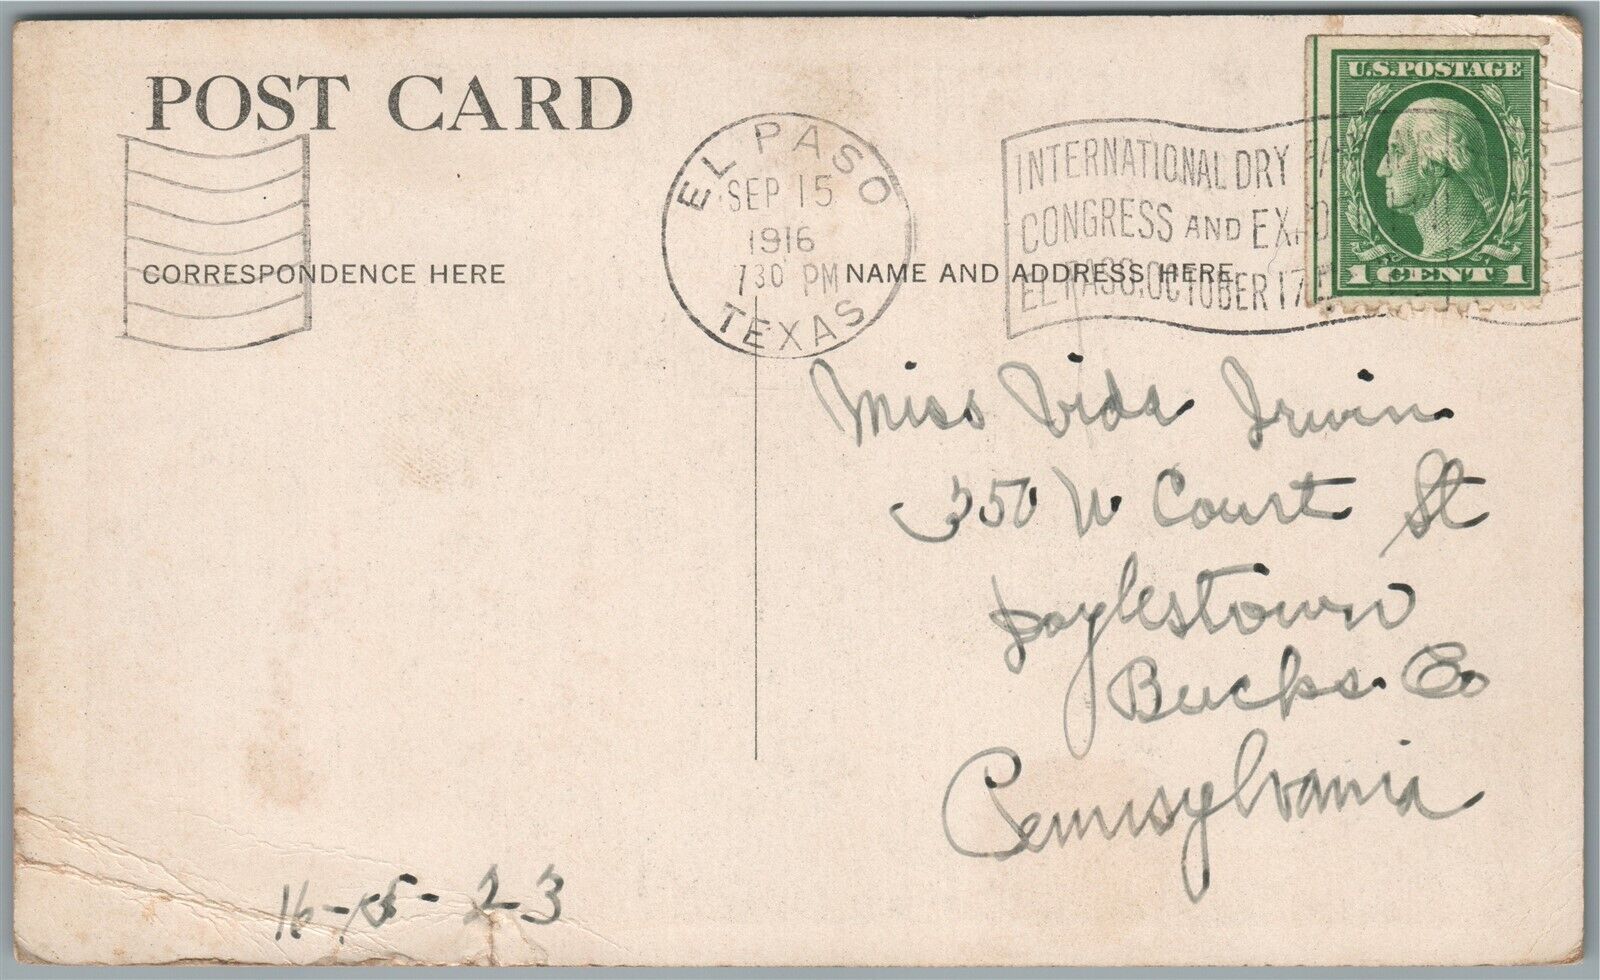 POST CARD
U.S. POSTAGE
1 CENT 1
EL PASO
SEP 15
1916
7 30 PM
TEXAS
INTERNATIONAL DRY FA
CONGRESS AND EXPO
EL PASO, OCTOBER 17
CORRESPONDENCE HERE
NAME AND ADDRESS HERE
Miss Vida Irwin
350 W Court St
Doylestown
Bucks. Co
Pennsylvania
16-15-23